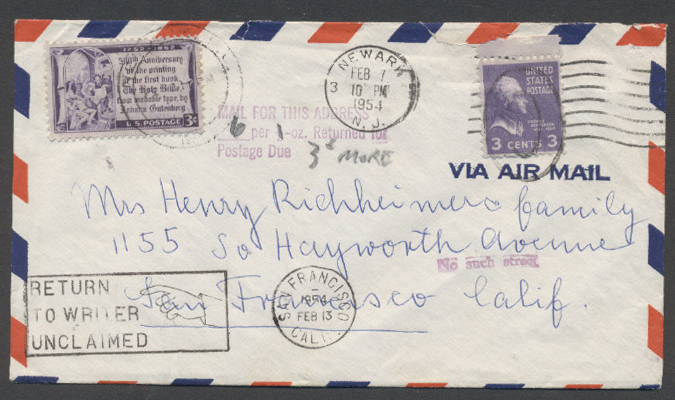 1452-1952
500th Anniversary
of the printing
of the first book,
The Holy Bible,
from movable type, by
Johann Gutenberg
U.S. POSTAGE 3¢
NEWARK
3
FEB 7
10 PM
1954
N. J.
UNITED
STATES
POSTAGE
3 CENTS 3
MAIL FOR THIS ADDRESS
6 per 1-oz. Returned for
Postage Due 3¢ MORE
VIA AIR MAIL
Mrs Henry Richheimer & family
1155 So Hayworth Avenue
No such street
San Francisco Calif.
RETURN
TO WRITER
UNCLAIMED
SAN FRANCISCO
1954
FEB 13
CALIF.